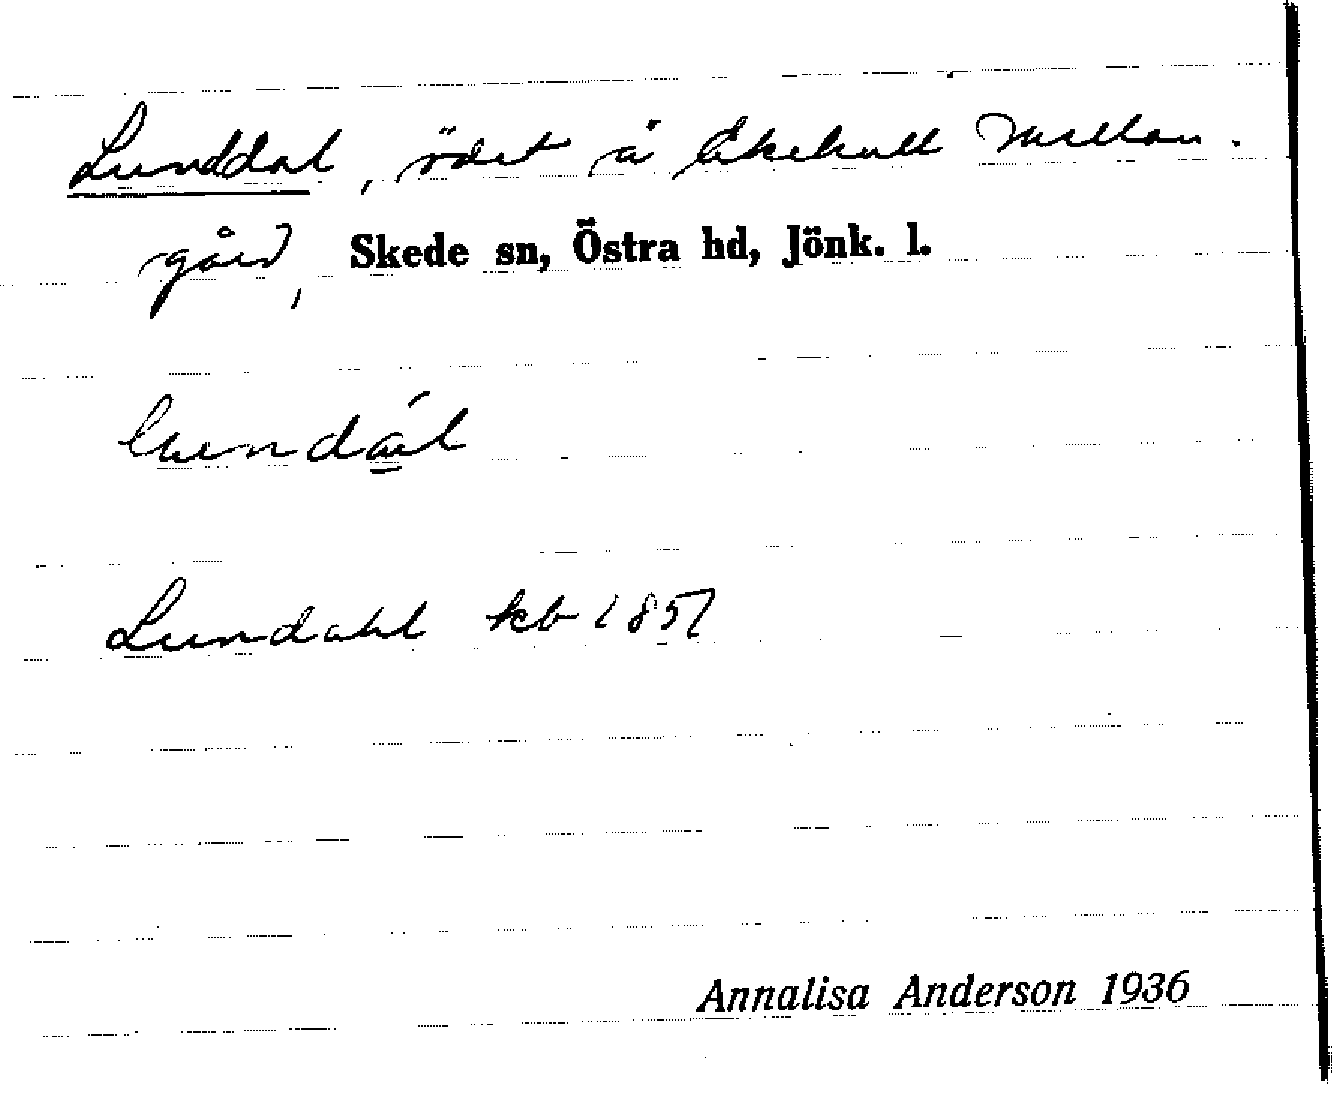 Lunddal, ödet å Ekekull Mellan-
gård, Skede sn, Östra hd, Jönk. l.
lundál
Lundahl kb 1857
Annalisa Anderson 1936